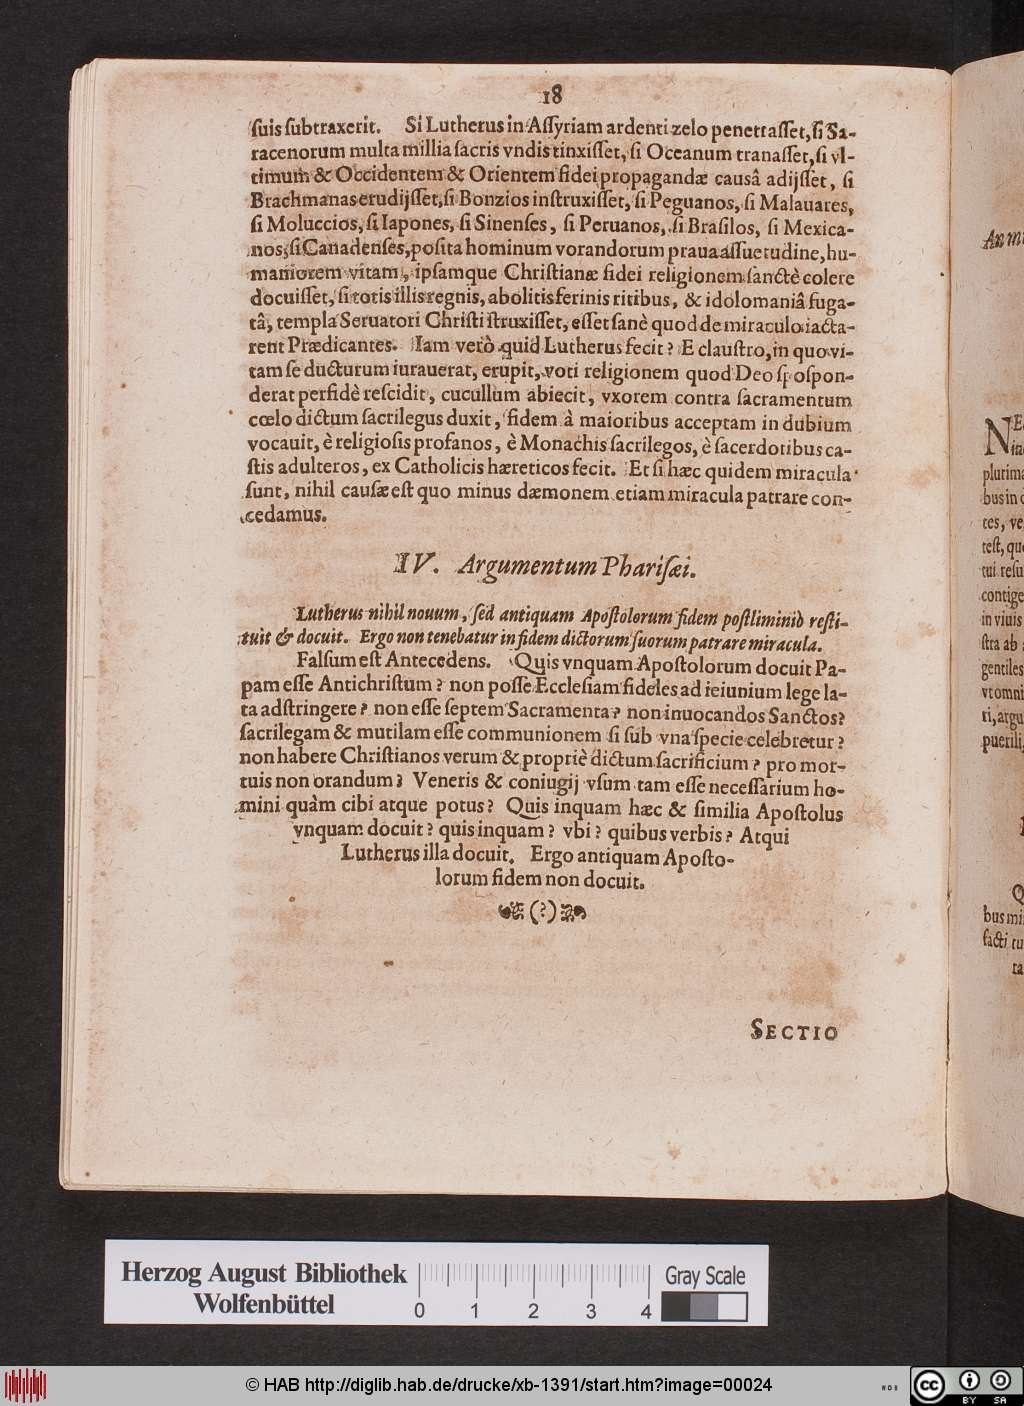 18
suis subtraxerit. Si Lutherus in Assyriam ardenti zelo penetrasset, si Sa-
racenorum multa millia sacris vndis tinxisset, si Oceanum tranasset, si vl-
timum & Occidentem & Orientem fidei propagandæ causâ adijsset, si
Brachmanas erudijsset, si Bonzios instruxisset, si Peguanos, si Malauares,
si Moluccios, si Iapones, si Sinenses, si Peruanos, si Brasilos, si Mexica-
nos, si Canadenses, posita hominum vorandorum praua assuetudine, hu-
maniorem vitam, ipsamque Christianæ fidei religionem sanctè colere
docuisset, si totis illis regnis, abolitis ferinis ritibus, & idolomaniâ fuga-
tâ, templa Seruatori Christi struxisset, esset sanè quod de miraculo iacta-
rent Prædicantes. Iam verò quid Lutherus fecit? E claustro, in quo vi-
tam se ducturum iurauerat, erupit, voti religionem quod Deo spospon-
derat perfidè rescidit, cucullum abiecit, vxorem contra sacramentum
cœlo dictum sacrilegus duxit, fidem à maioribus acceptam in dubium
vocauit, è religiosis profanos, è Monachis sacrilegos, è sacerdotibus ca-
stis adulteros, ex Catholicis hæreticos fecit. Et si hæc quidem miracula
sunt, nihil causæ est quo minus dæmonem etiam miracula patrare con-
cedamus.
IV. Argumentum Pharisæi.
Lutherus nihil nouum, sed antiquam Apostolorum fidem postliminiò resti-
tuit & docuit. Ergo non tenebatur in fidem dictorum suorum patrare miracula.
Falsum est Antecedens. Quis vnquam Apostolorum docuit Pa-
pam esse Antichristum? non posse Ecclesiam fideles ad ieiunium lege la-
ta adstringere? non esse septem Sacramenta? non inuocandos Sanctos?
sacrilegam & mutilam esse communionem si sub vna specie celebretur?
non habere Christianos verum & propriè dictum sacrificium? pro mor-
tuis non orandum? Veneris & coniugij vsum tam esse necessarium ho-
mini quàm cibi atque potus? Quis inquam hæc & similia Apostolus
vnquam docuit? quis inquam? vbi? quibus verbis? Atqui
Lutherus illa docuit. Ergo antiquam Aposto-
lorum fidem non docuit.
(?)
SECTIO
plurima
bus in
tes, ve
test, quo
tui resu
contige
in viuis
stra ab
gentiles
vt omni
ri, argu
puerili,
bus mi
facti tu
ta
Herzog August Bibliothek
Wolfenbüttel
0 1 2 3 4
Gray Scale
© HAB http://diglib.hab.de/drucke/xb-1391/start.htm?image=00024
cc
BY SA